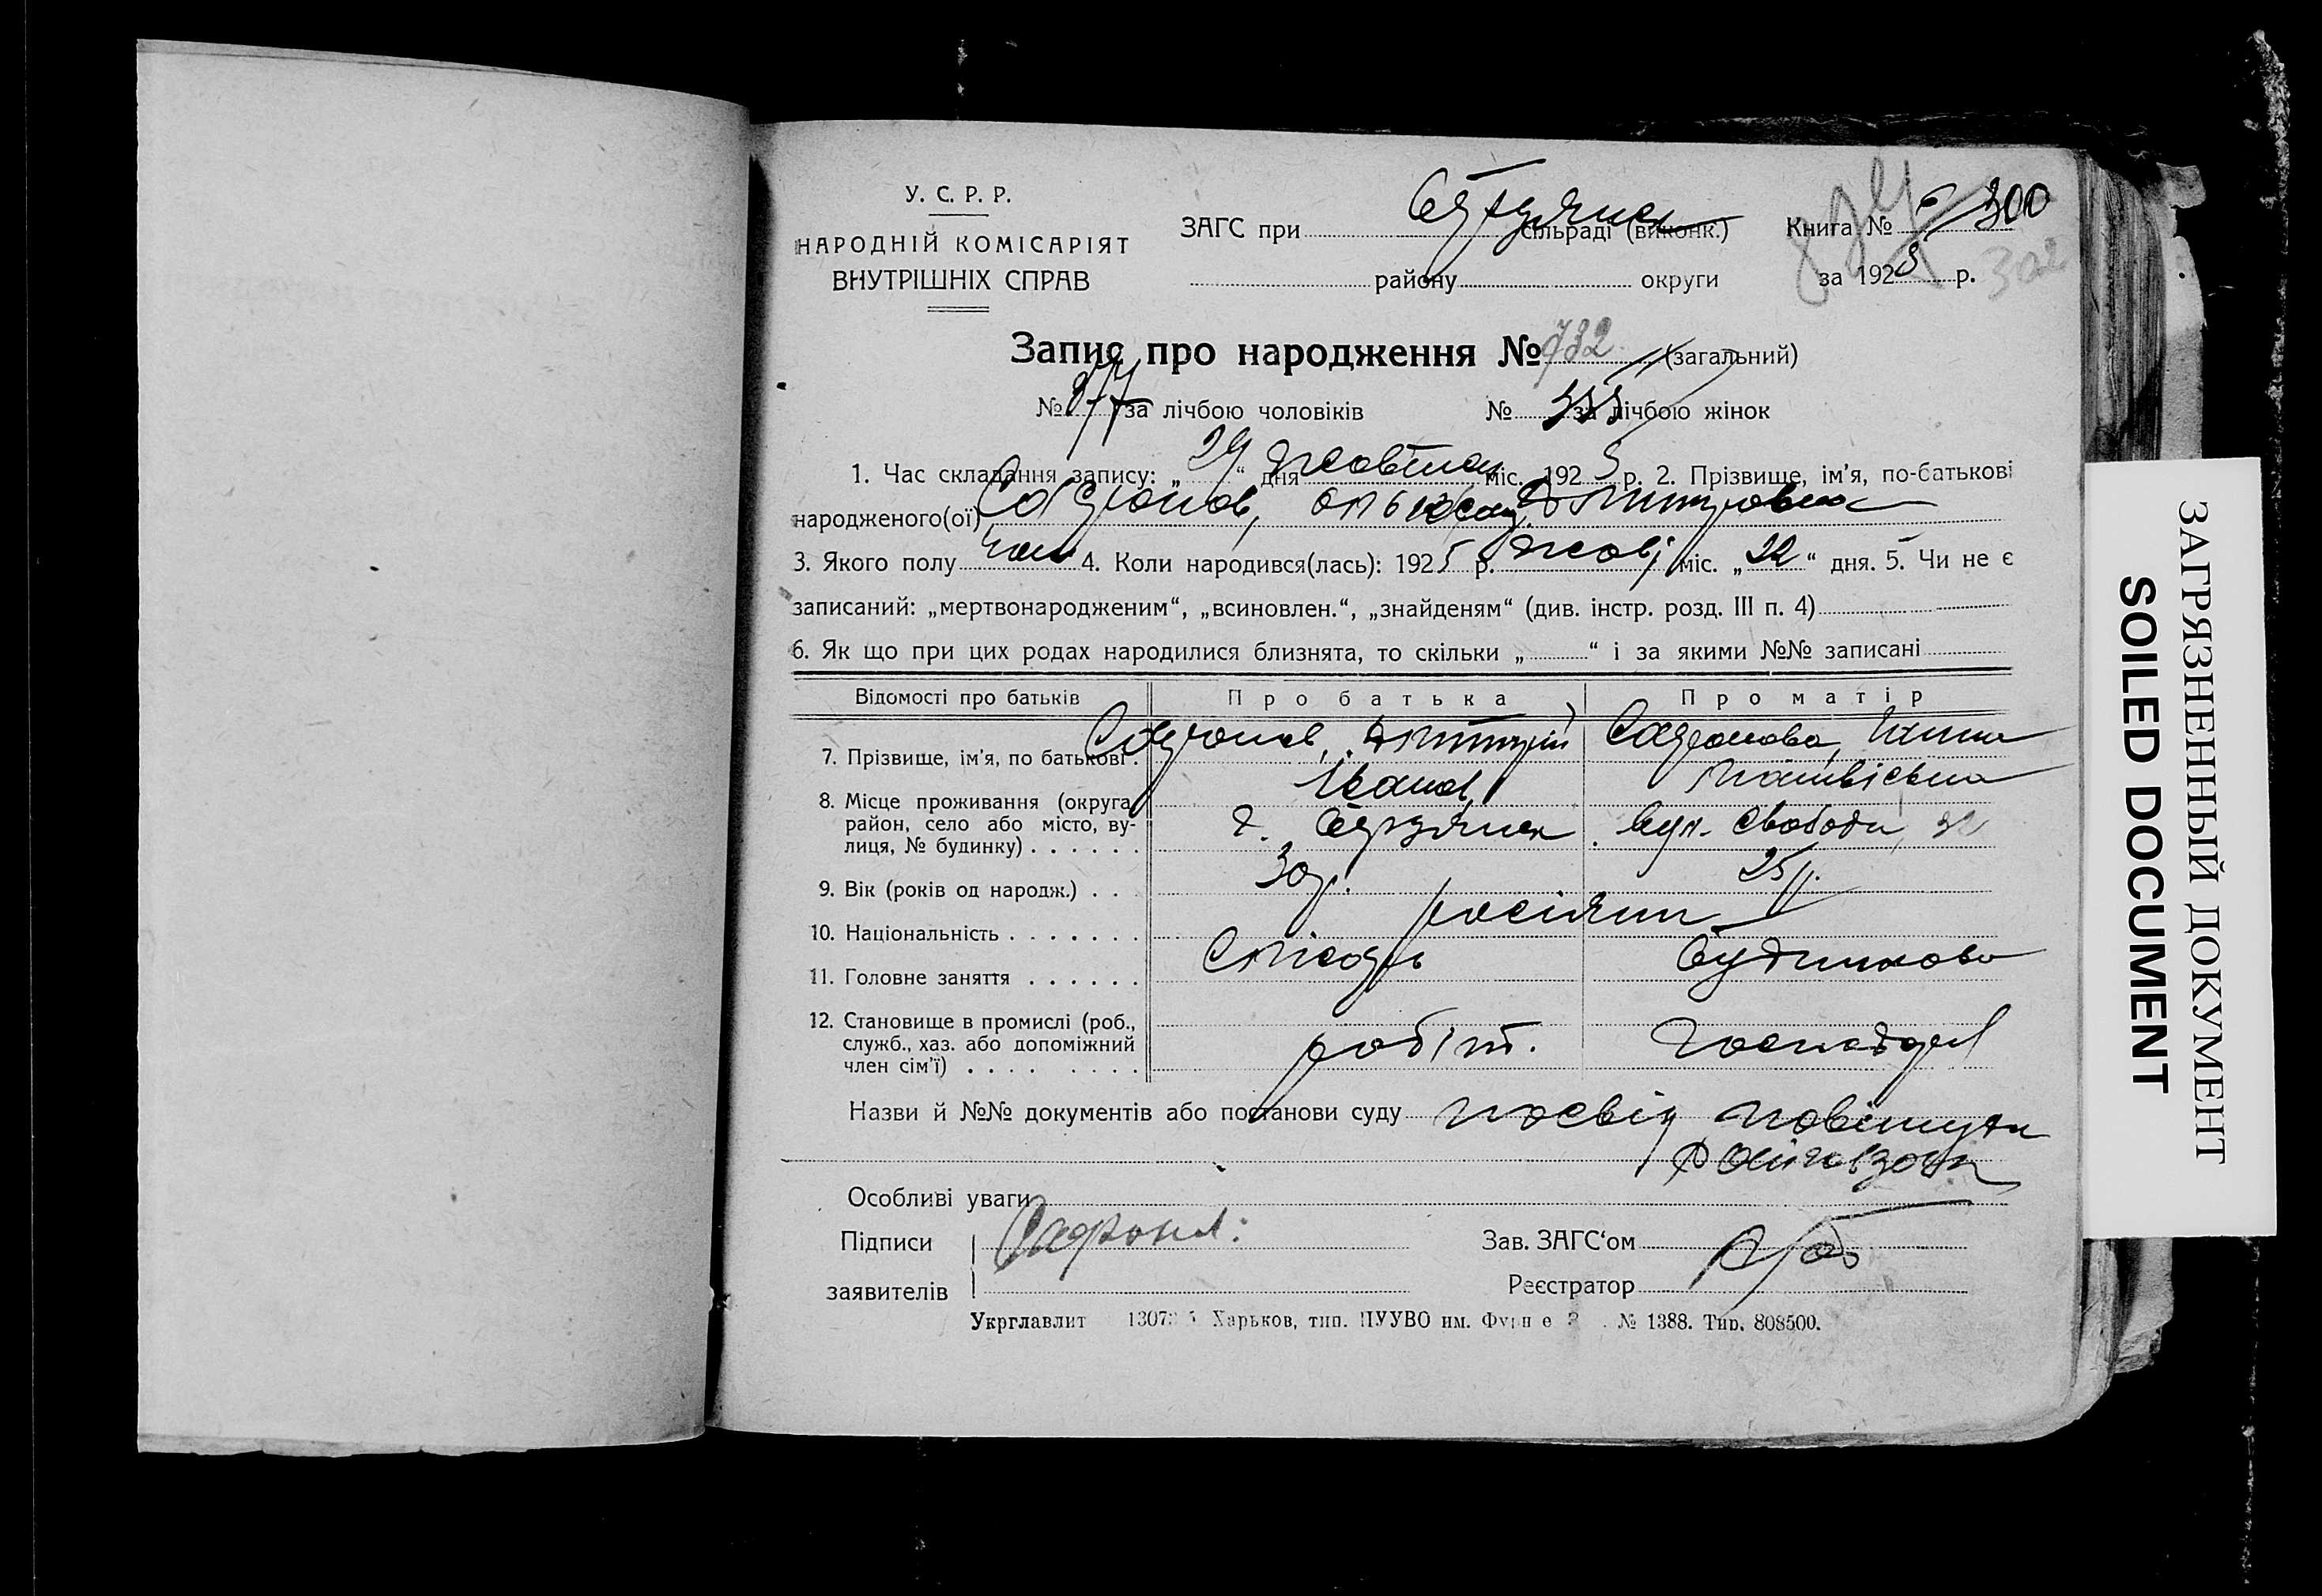 У. С. Р. Р.
НАРОДНІЙ КОМІСАРІЯТ
ВНУТРІШНІХ СПРАВ
ЗАГС при сільраді (виконк.)
району округи
Книга № 6 300
за 1925 р. 302
Запис про народження № 732 (загальний)
№ 377 за лічбою чоловіків № 355 за лічбою жінок
1. Час складання запису: „ 24 “ дня жовтня міс. 1925 р. 2. Прізвище, ім’я, по-батькові
народженого(ої) Сафронов,
3. Якого полу чол. 4. Коли народився(лась): 1925 р. жовт міс. „ 22 “ дня. 5. Чи не є
записаний: „мертвонародженим“, „всиновлен.“, „знайденям“ (див. інстр. розд. III п. 4)
6. Як що при цих родах народилися близнята, то скільки „ “ і за якими №№ записані
Відомості про батьків Про батька Про матір
7. Прізвище, ім’я, по батькові . Сафронов, Дмитрій Сафронова,
Іванов Матвієвна
8. Місце проживання (округа,
район, село або місто, ву-
лиця, № будинку) . . . . . . вул. Свободи, 32
9. Вік (років од народж.) . . 30 р. 25 р.
10. Національність . . . . . . . росіяни
11. Головне заняття . . . . . . Слюсарь
12. Становище в промислі (роб.,
служб., хаз. або допоміжний
член сім’ї) . . . . . . . . робітн.
Назви й №№ документів або постанови суду посвід
Особливі уваги
Підписи Сафронов
заявителів
Зав. ЗАГС‘ом
Реєстратор
Укрглавлит Харьков, тип. ПУУВО им. № 1388. Тир. 808500.
ЗАГРЯЗНЕННЫЙ ДОКУМЕНТ
SOILED DOCUMENT